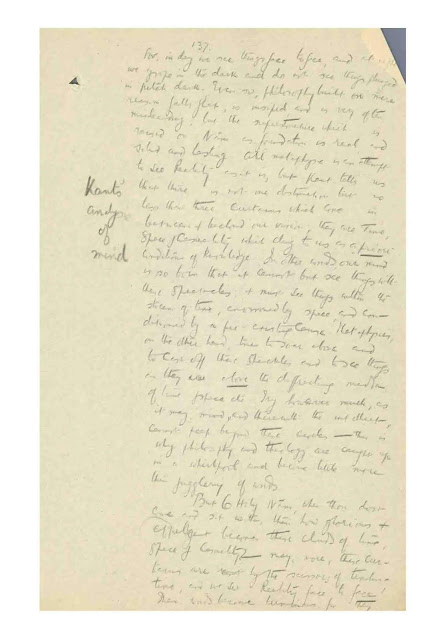 137.
For, in day we see things face to face, and at
we grope in the dark and do not see things plunged
in pitch dark. Even so, philosophy built on mere
reason falls flat, is insipid and is very often
misleading but the superstructure which is
raised on Nām as foundation is real and
solid and lasting. All metaphysics is an attempt
to see Reality as it is, but Kant tells us
that there is not one obstruction but no
less than three Curtains which come in
between & becloud our vision; they are Time,
Space & Causality which cling to us as a priori
Kant's
analysis
of
mind
conditions of knowledge. In other words our mind
is so born that it cannot but see things with
these spectacles; it must see things within the
stream of time, environed by space and con-
ditioned by a pre-existing cause. Metaphysics,
on the other hand, tries to soar above and
to cast off these shackles and to see things
as they are above the diffracting medium
of time space etc. Try however much, as
it may, mind, and therewith the intellect,
cannot peep beyond these circles — this is
why philosophy and theology are caught up
in a whirlpool and become little more
than jugglery of words.
But O Holy Nām, when thou dost
come and sit within, then how glorious &
effulgent become these clouds of time,
space & Causality — nay, more, these cur-
tains are rent by the scissors of
time, and we see Reality face to face!
Then words become luminous for they